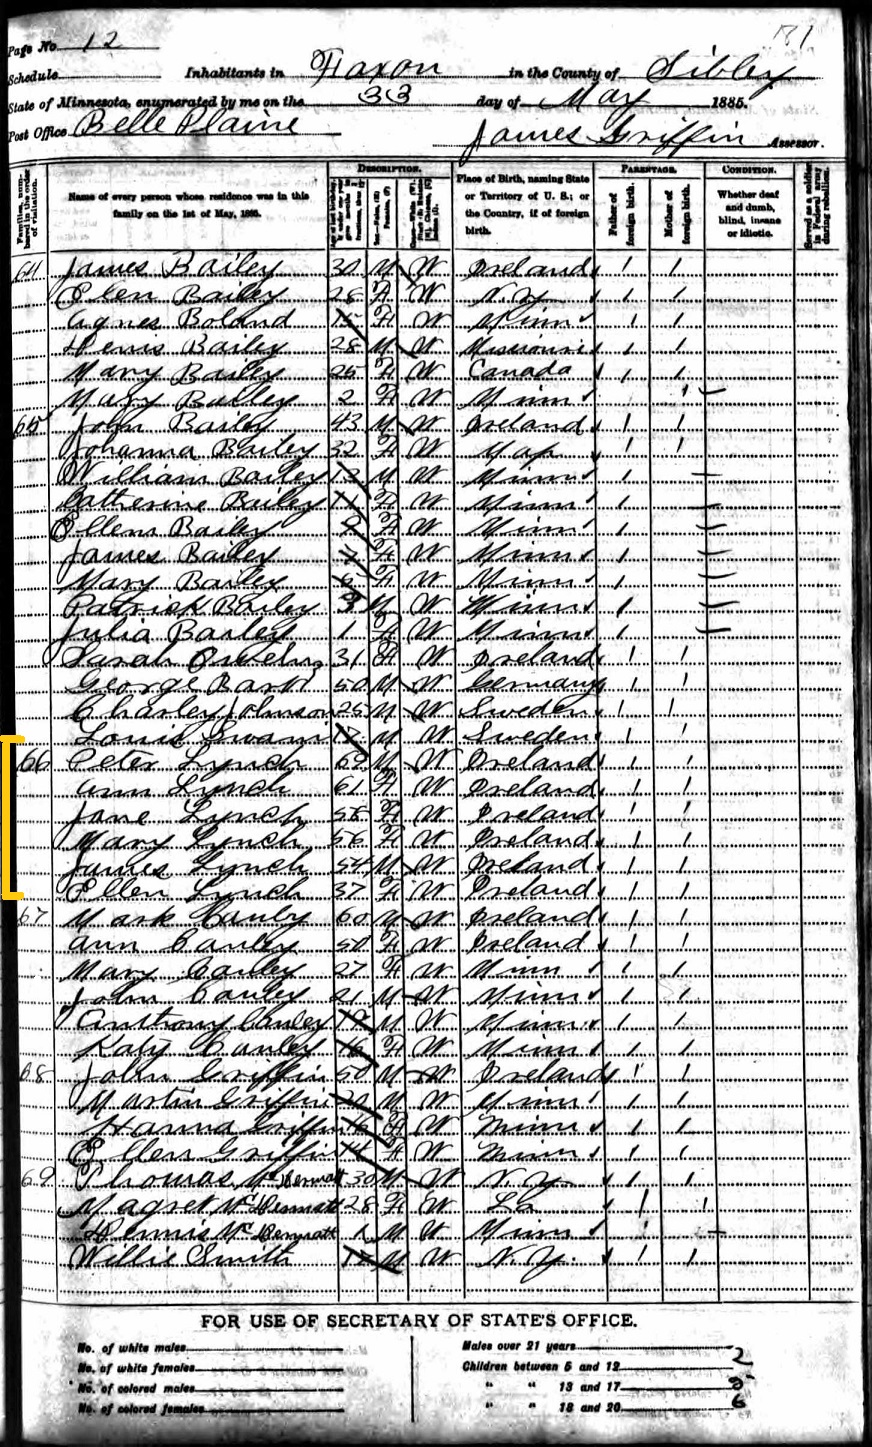 181
Page No. 12
Schedule Inhabitants in Faxon in the County of Sibley
State of Minnesota, enumerated by me on the 33 day of May 1885.
Post Office Belle Plaine
James Griffin Assessor.
Families, numbered in the order of visitation.
Name of every person whose residence was in this family on the 1st of May, 1885.
DESCRIPTION.
Place of Birth, naming State or Territory of U. S.; or the Country, if of foreign birth.
PARENTAGE.
Father of foreign birth.
Mother of foreign birth.
CONDITION.
Whether deaf and dumb, blind, insane or idiotic.
Served as a soldier in Federal army during rebellion.
64 James Bailey 30 M W Ireland 1 1
Ellen Bailey 28 F W N.Y. 1 1
Agnes Boland 15 F W Minn 1 1
Denis Bailey 28 M W Missouri 1 1
Mary Bailey 25 F W Canada 1 1
Mary Bailey 2 F W Minn 1
65 John Bailey 43 M W Ireland 1 1
Johanna Bailey 32 F W 1 1
William Bailey 13 M W Minn 1
Catherine Bailey 11 F W Minn 1
Ellen Bailey 9 F W Minn 1
James Bailey 7 F W Minn 1
Mary Bailey F W Minn 1
Patrick Bailey 3 M W Minn 1
Julia Bailey 1 F W Minn 1
Sarah 31 F W Ireland 1 1
George 50 M W Germany 1 1
Charley Johnson 25 M W Sweden 1 1
Louis Swan 17 M W Sweden 1 1
66 Peter Lynch M W Ireland 1 1
Ann Lynch 61 F W Ireland 1 1
Jane Lynch 58 F W Ireland 1 1
Mary Lynch 56 F W Ireland 1 1
James Lynch 54 M W Ireland 1 1
Ellen Lynch 37 F W Ireland 1 1
67 Mark Canley 60 M W Ireland 1 1
Ann Canley 50 F W Ireland 1 1
Mary Canley 27 F W Minn 1 1
John Canley 21 M W Minn 1 1
Anthony Canley M W Minn 1 1
Katy Canley 16 F W Minn 1 1
68 John Griffin 50 M W Ireland 1 1
Martin Griffin 20 M W Minn 1 1
Hanna Griffin 16 F W Minn 1 1
Ellen Griffin 14 F W Minn 1 1
69 Thomas McDermatt 30 M W N.Y. 1 1
Magret McDermatt 28 F W La 1 1
Dennis McDermatt 1 M W Minn 1
Willie Smith 17 M W N.Y. 1 1
FOR USE OF SECRETARY OF STATE'S OFFICE.
No. of white males
No. of white females
No. of colored males
No. of colored females
Males over 21 years
Children between 5 and 12 2
" " 13 and 17 8
" " 18 and 20 6